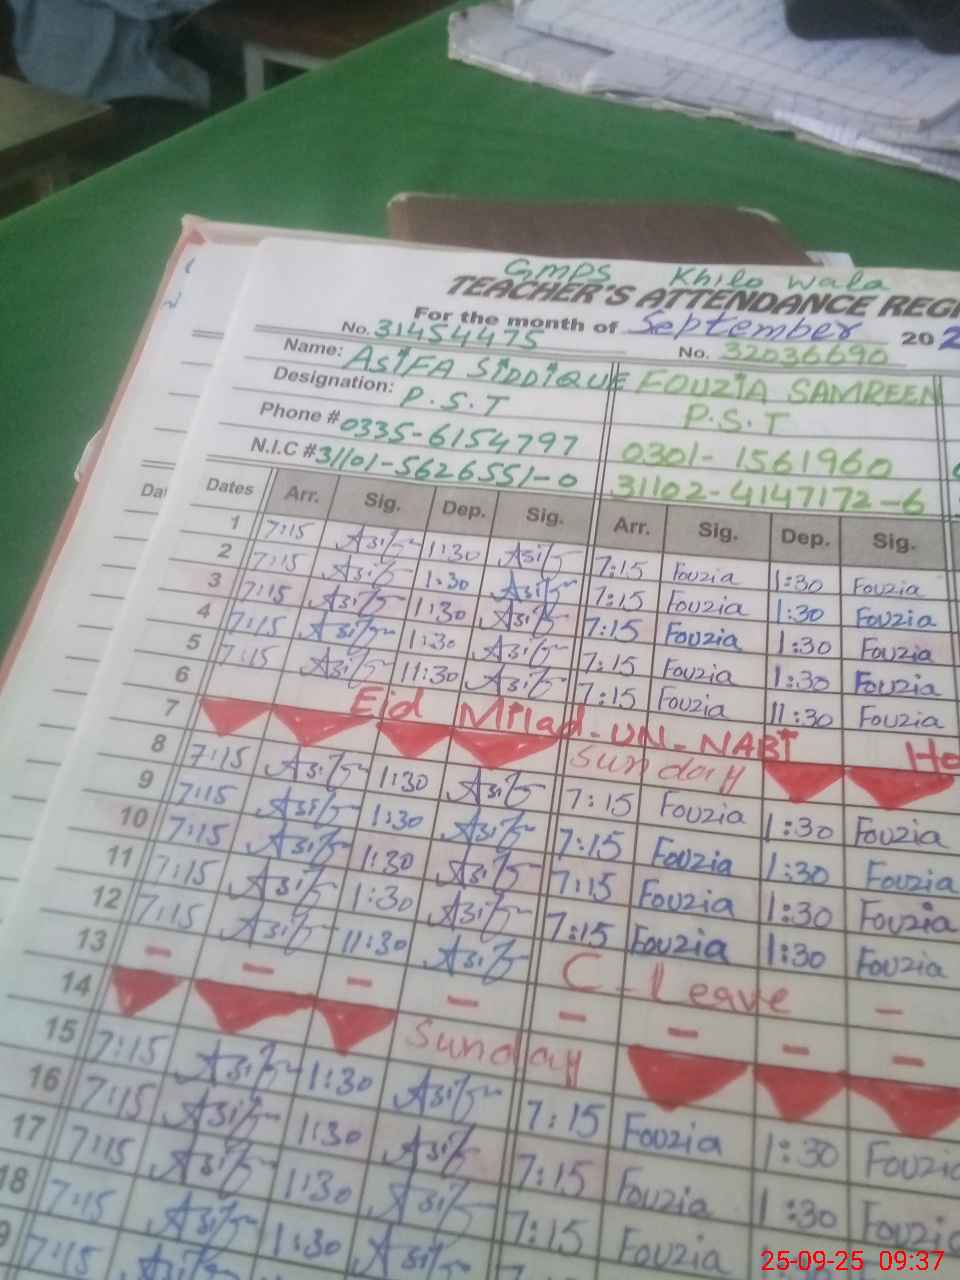 GMPS Khilo wala
TEACHER'S ATTENDANCE REGI
For the month of September 202
No. 31454475 No. 32036690
Name: ASIFA SIDDIQUE FOUZIA SAMREEN
Designation: P.S.T P.S.T
Phone # 0335-6154797 0301-1561960
N.I.C # 31101-5626551-0 31102-4147172-6
Dates Arr. Sig. Dep. Sig. Arr. Sig. Dep. Sig.
1 7:15 Asifa 1:30 Asifa 7:15 Fouzia 1:30 Fouzia
2 7:15 Asifa 1:30 Asifa 7:15 Fouzia 1:30 Fouzia
3 7:15 Asifa 1:30 Asifa 7:15 Fouzia 1:30 Fouzia
4 7:15 Asifa 1:30 Asifa 7:15 Fouzia 1:30 Fouzia
5 7:15 Asifa 11:30 Asifa 7:15 Fouzia 11:30 Fouzia
6 Eid Milad-UN-NABI Ho
7 Sunday
8 7:15 Asifa 1:30 Asifa 7:15 Fouzia 1:30 Fouzia
9 7:15 Asifa 1:30 Asifa 7:15 Fouzia 1:30 Fouzia
10 7:15 Asifa 1:30 Asifa 7:15 Fouzia 1:30 Fouzia
11 7:15 Asifa 1:30 Asifa 7:15 Fouzia 1:30 Fouzia
12 7:15 Asifa 11:30 Asifa C-Leave -
13 - - - - - - - -
14 Sunday
15 7:15 Asifa 1:30 Asifa 7:15 Fouzia 1:30 Fouzia
16 7:15 Asifa 1:30 Asifa 7:15 Fouzia 1:30 Fouzia
17 7:15 Asifa 1:30 Asifa 7:15 Fouzia
18 7:15 Asifa 1:30 Asifa
9 7:15 Asifa
Dat
25-09-25 09:37